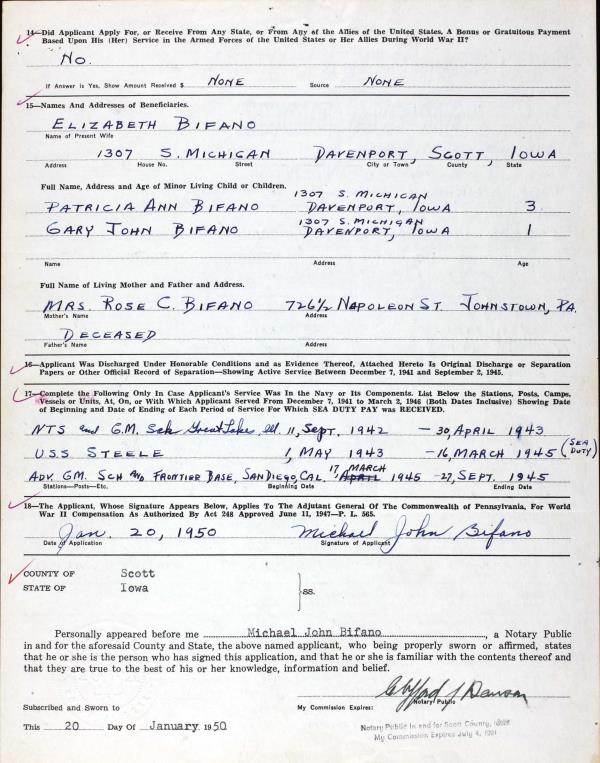 14—Did Applicant Apply For, or Receive From Any State, or From Any of the Allies of the United States, A Bonus or Gratuitous Payment
Based Upon His (Her) Service in the Armed Forces of the United States or Her Allies During World War II?
NO.
If Answer is Yes, Show Amount Received $ NONE Source NONE
15—Names And Addresses of Beneficiaries.
ELIZABETH BIFANO
Name of Present Wife
1307 S. MICHIGAN DAVENPORT, SCOTT, IOWA
Address House No. Street City or Town County State
Full Name, Address and Age of Minor Living Child or Children.
1307 S. MICHIGAN
PATRICIA ANN BIFANO DAVENPORT, IOWA 3
1307 S. MICHIGAN
GARY JOHN BIFANO DAVENPORT, IOWA 1
Name Address Age
Full Name of Living Mother and Father and Address.
MRS. ROSE C. BIFANO 726½ NAPOLEON ST. JOHNSTOWN, PA.
Mother's Name Address
DECEASED
Father's Name Address
16—Applicant Was Discharged Under Honorable Conditions and as Evidence Thereof, Attached Hereto Is Original Discharge or Separation
Papers or Other Official Record of Separation—Showing Active Service Between December 7, 1941 and September 2, 1945.
17—Complete the Following Only In Case Applicant's Service Was In the Navy or Its Components. List Below the Stations, Posts, Camps,
Vessels or Units, At, On, or With Which Applicant Served From December 7, 1941 to March 2, 1946 (Both Dates Inclusive) Showing Date
of Beginning and Date of Ending of Each Period of Service For Which SEA DUTY PAY was RECEIVED.
NTS and G.M. Sch Great Lake, Ill. 11, Sept. 1942 — 30, APRIL 1943
U.S.S STEELE 1, MAY 1943 — 16, MARCH 1945 (SEA DUTY)
17, MARCH
ADV. GM. SCH AND FRONTIER BASE, SAN DIEGO, CAL. APRIL 1945 — 27, SEPT. 1945
Stations—Posts—Etc. Beginning Date Ending Date
18—The Applicant, Whose Signature Appears Below, Applies To The Adjutant General Of The Commonwealth of Pennsylvania, For World
War II Compensation As Authorized By Act 248 Approved June 11, 1947—P. L. 565.
Jan. 20, 1950 Michael John Bifano
Date of Application Signature of Applicant
COUNTY OF Scott
STATE OF Iowa
ss.
Personally appeared before me Michael John Bifano, a Notary Public
in and for the aforesaid County and State, the above named applicant, who being properly sworn or affirmed, states
that he or she is the person who has signed this application, and that he or she is familiar with the contents thereof and
that they are true to the best of his or her knowledge, information and belief.
Notary Public
Subscribed and Sworn to My Commission Expires:
This 20 Day Of January 1950
Notary Public in and for Scott County,
My Commission Expires July 4, 1951